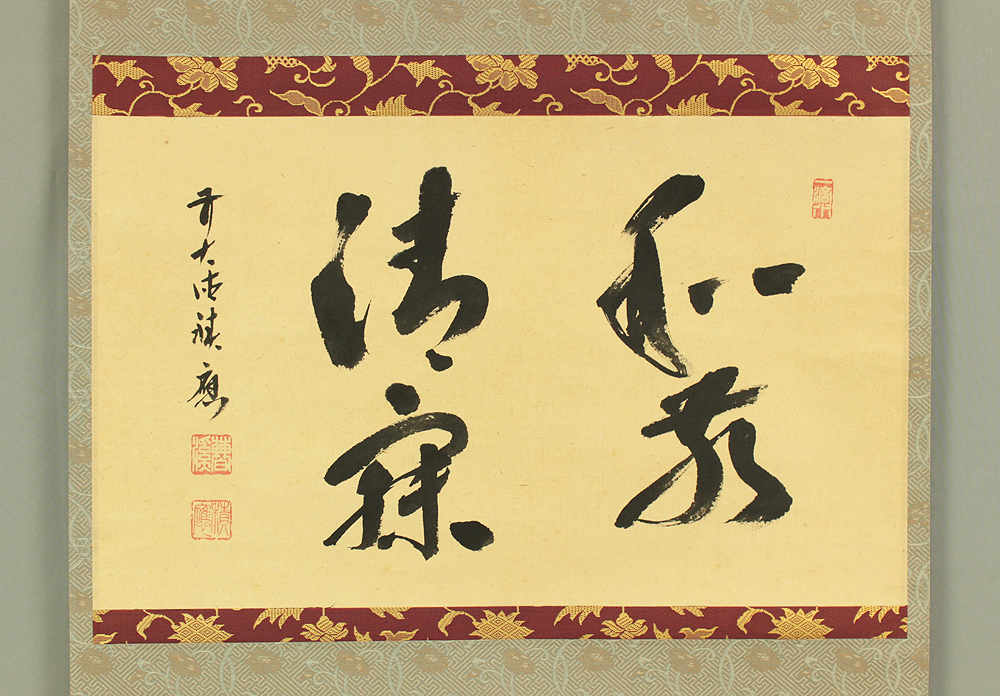 和敬
清寂
前大徳積應